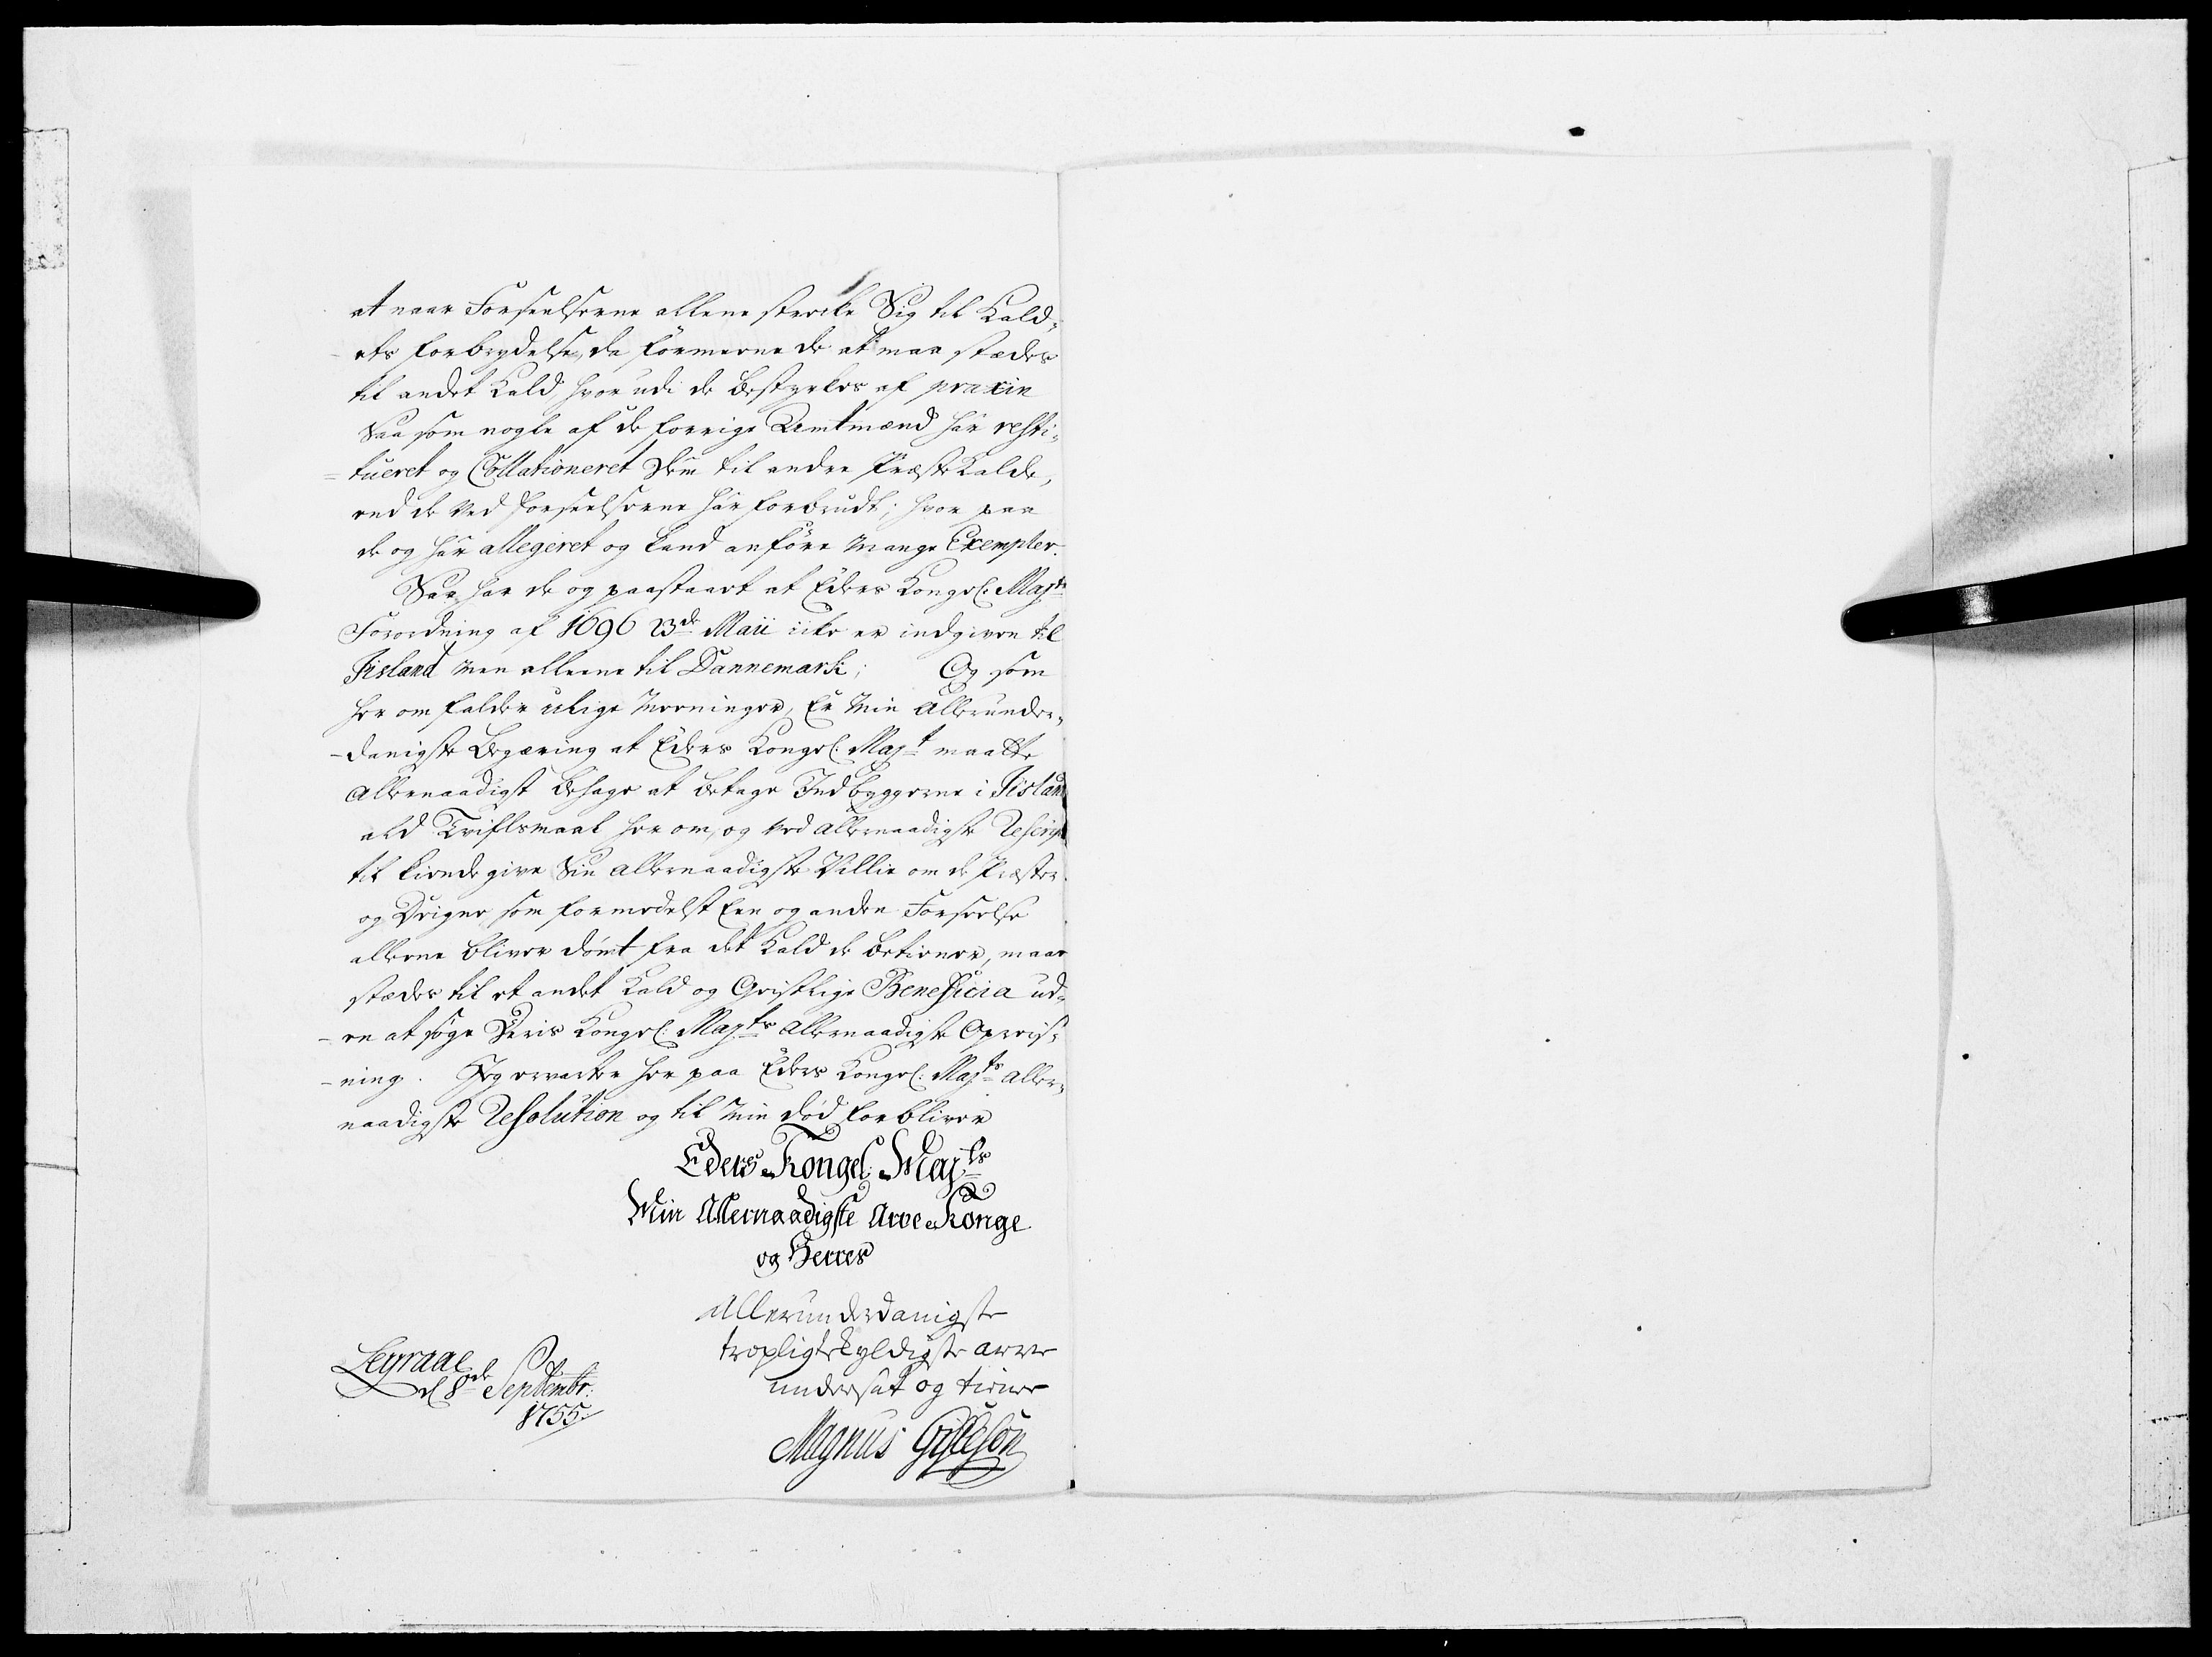 at naar Forseelserne allene strecke Sig til Kald¬
ets forbrydelse, da formeene de at maa stædes
til andet Kald, hvor udi de bestyrkes af praxin
Saa som nogle af de forrige Amtmænd har resti¬
tueret og Collationeret dem til andre Præste Kalde,
end de ved forseelserne har forbrudt; hvor paa
de og har allegeret og kand anføre mange Exempler.
Saa har de og paastaaet at Eders Kongel: Majts
Forordning af 1696 23de Maii icke er indgiven til
Iisland men alleene til Dannemark; Og som
her om falder ulige Meeninger, Er Min Allerunder¬
danigste Begæring at Eders Kongel: Majt maatte
Allernaadigst behage at betage Indbyggerne i Iisland
ald Tvifls maal her om, og ved Allernaadigste Rescript
til kiende give Sin Allernaadigste Villie om de Præster
og Degne som formedelst Een og anden Forseelse
alleene bliver dømt fra det Kald de betiener, maae
stædes til et andet Kald og Geistlige Beneficia ud¬
en at søge Deris Kongel: Majts Allernaadigste Opreis¬
ning. Jeg erwarter her paa Eders Kongel: Majts Aller¬
naadigste Resolution og til Min død forbliver
Eders Kongel: Majts
Min Allernaadigste Arve Konge
og Herres
Allerunderdanigste
tropligtskyldigste arve
undersåt og tiener
Magnus Gislesøn
Leyraae
d 8de Septembr:
1755